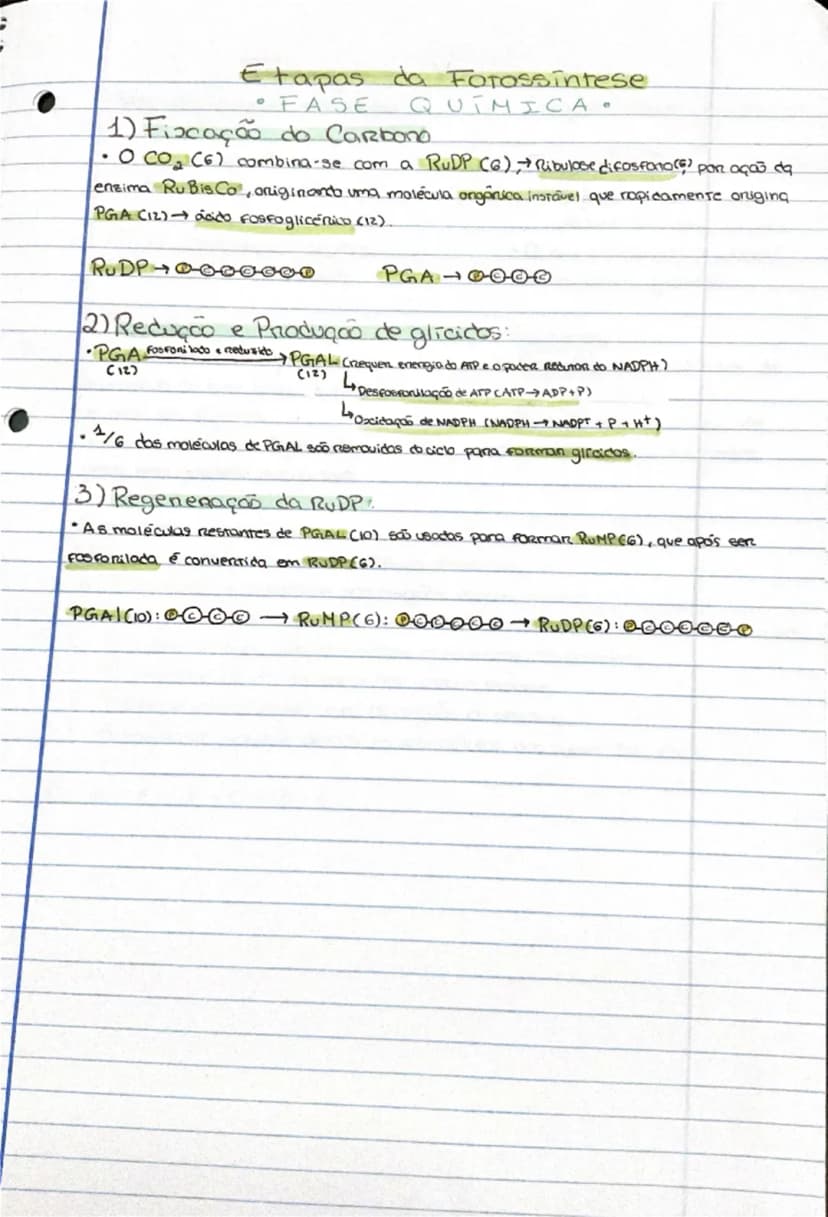 Etapas da Fotossíntese
• FASE QUÍMICA •
1) Fixação do Carbono
• O CO₂ (6) combina-se com a RuDP (6), → Ribulose difosfato (6) por ação da
enzima RuBisCo, originando uma molécula orgânica instável que rapicamente origina
PGA (12) → ácido fosfoglicérico (12).
RuDP → P-C-C-C-C-C-P PGA → P-C-C-C
2) Redução e Produção de glícidos:
• PGA fosforilado e reduzido → PGAL (requer energia do ATP e o poder redutor do NADPH)
(12) (12) ↳ Desfosforilação de ATP (ATP → ADP + P)
↳ Oxidação de NADPH (NADPH → NADP⁺ + P + H⁺)
• 1/6 das moléculas de PGAL são removidas do ciclo para formar glícidos.
3) Regeneração da RuDP:
• As moléculas restantes de PGAL (10) são usadas para formar RuMP (6), que após ser
fosforilada é convertida em RuDP (6).
PGAl (10): P-C-C-C → RuMP (6): P-C-C-C-C-C → RuDP (6): P-C-C-C-C-C-P